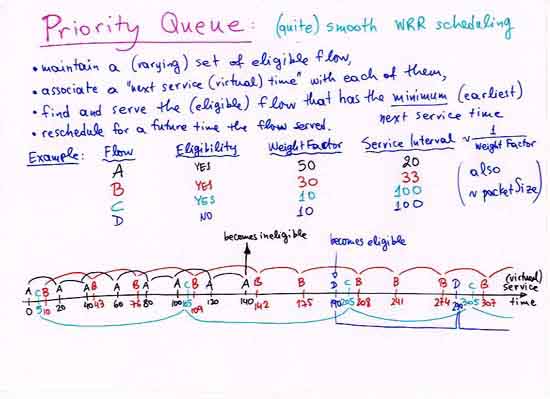 Priority Queue: (quite) smooth WRR scheduling
• maintain a (varying) set of eligible flow,
• associate a "next service (virtual) time" with each of them,
• find and serve the (eligible) flow that has the minimum (earliest)
next service time
• reschedule for a future time the flow served.
Example: Flow Eligibility Weight Factor Service Interval ~ 1/Weight Factor
A YES 50 20
B YES 30 33
C YES 10 100
D NO 10 100
(also
~ packet Size)
becomes ineligible becomes eligible
A C B A A B A B A A C B A A B B D C B B B D C B (virtual)
service
time
0 5 10 20 40 43 60 76 80 100 105 109 120 140 142 175 190 205 208 241 274 290 305 307